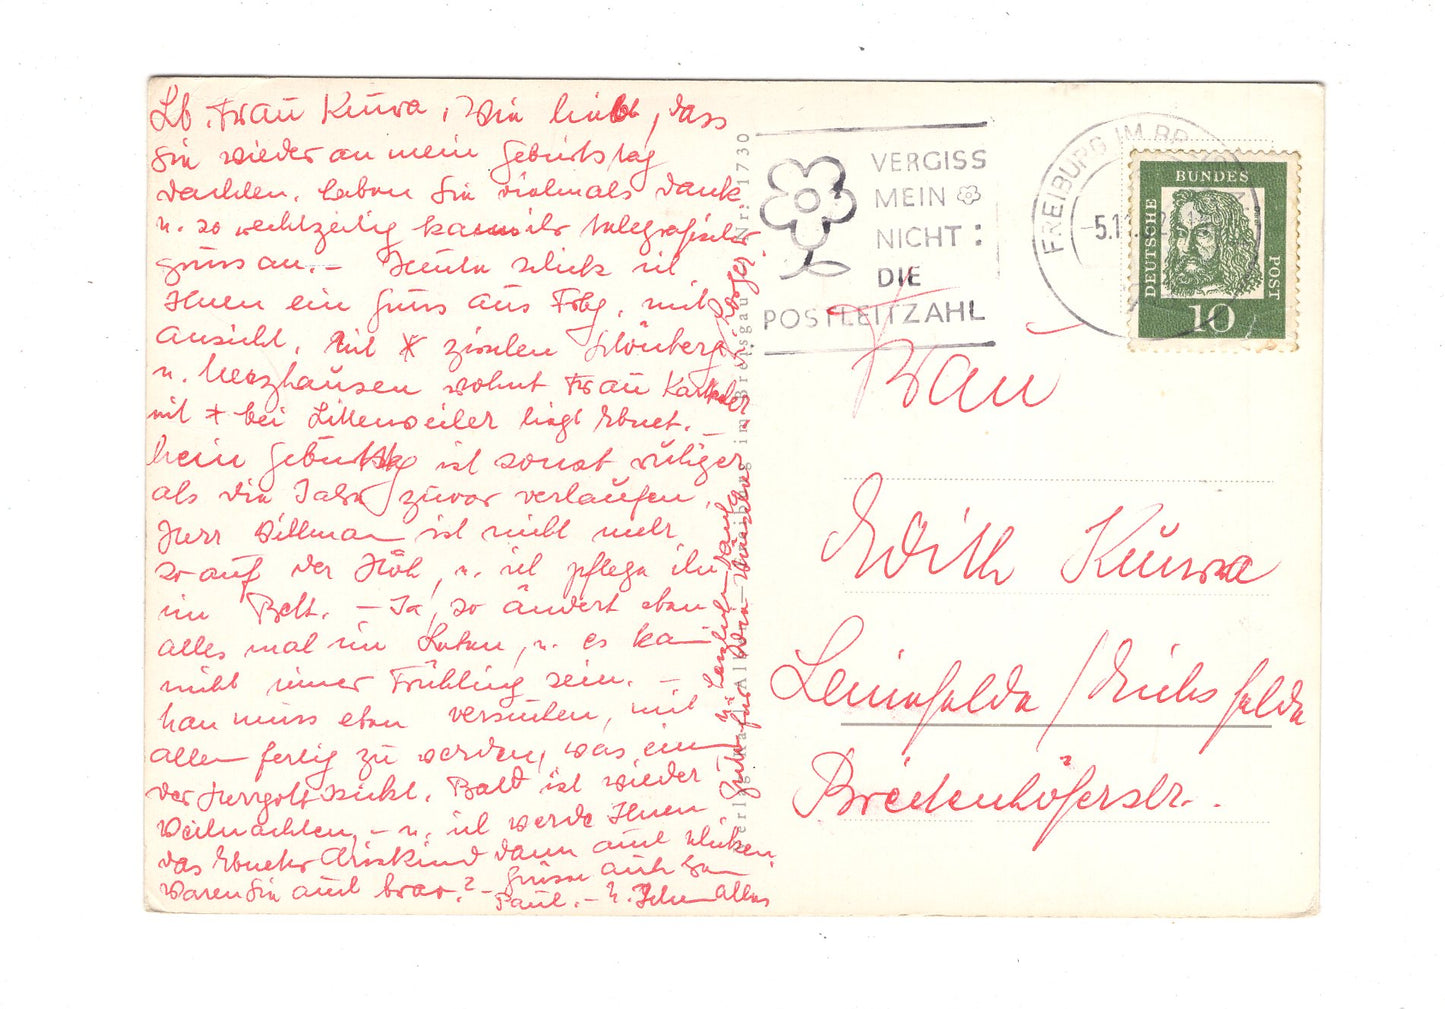 Lb. Frau Kuwa, Wie lieb, dass
Sie wieder an mein Geburtstag
dachten. Haben Sie vielmals Dank
u. so rechtzeitig kam ihr telegrafischer
gruss an. – Heute schick ich
Ihnen ein Gruss aus Frbg. mit
Ansicht. Mit * zwischen Schönberg
u. Merzhausen wohnt Frau
mit + bei Littenweiler liegt Ebnet. –
Mein Geburtstag ist sonst ruhiger
als die Jahre zuvor verlaufen.
Herr Dillman ist nicht mehr
so auf der Höh, u. ich pflege ihn
im Bett. – Ja, so ändert eben
alles mal im Leben, u. es kan
nicht imer Frühling sein. –
Man muss eben versuchen, mit
allem fertig zu werden, was ein
der Herrgott schickt. Bald ist wieder
Weihnachten, – u. ich werde Ihnen
das Ebneter Christkind dann auch schicken.
Waren Sie auch brav? – Grüsse auch von
Paul. – u. Ihnen alles
Gute für
u. herzlich
VERGISS
MEIN
NICHT:
DIE
POSTLEITZAHL
FREIBURG IM BR
-5.11.
DEUTSCHE
BUNDES
POST
10
Frau
Edith Kuwa
Leinefelde / Eichsfelde
Breitenhölzerstr.
Verlag Karl Al
Freiburg im Breisgau
Nr. 1730